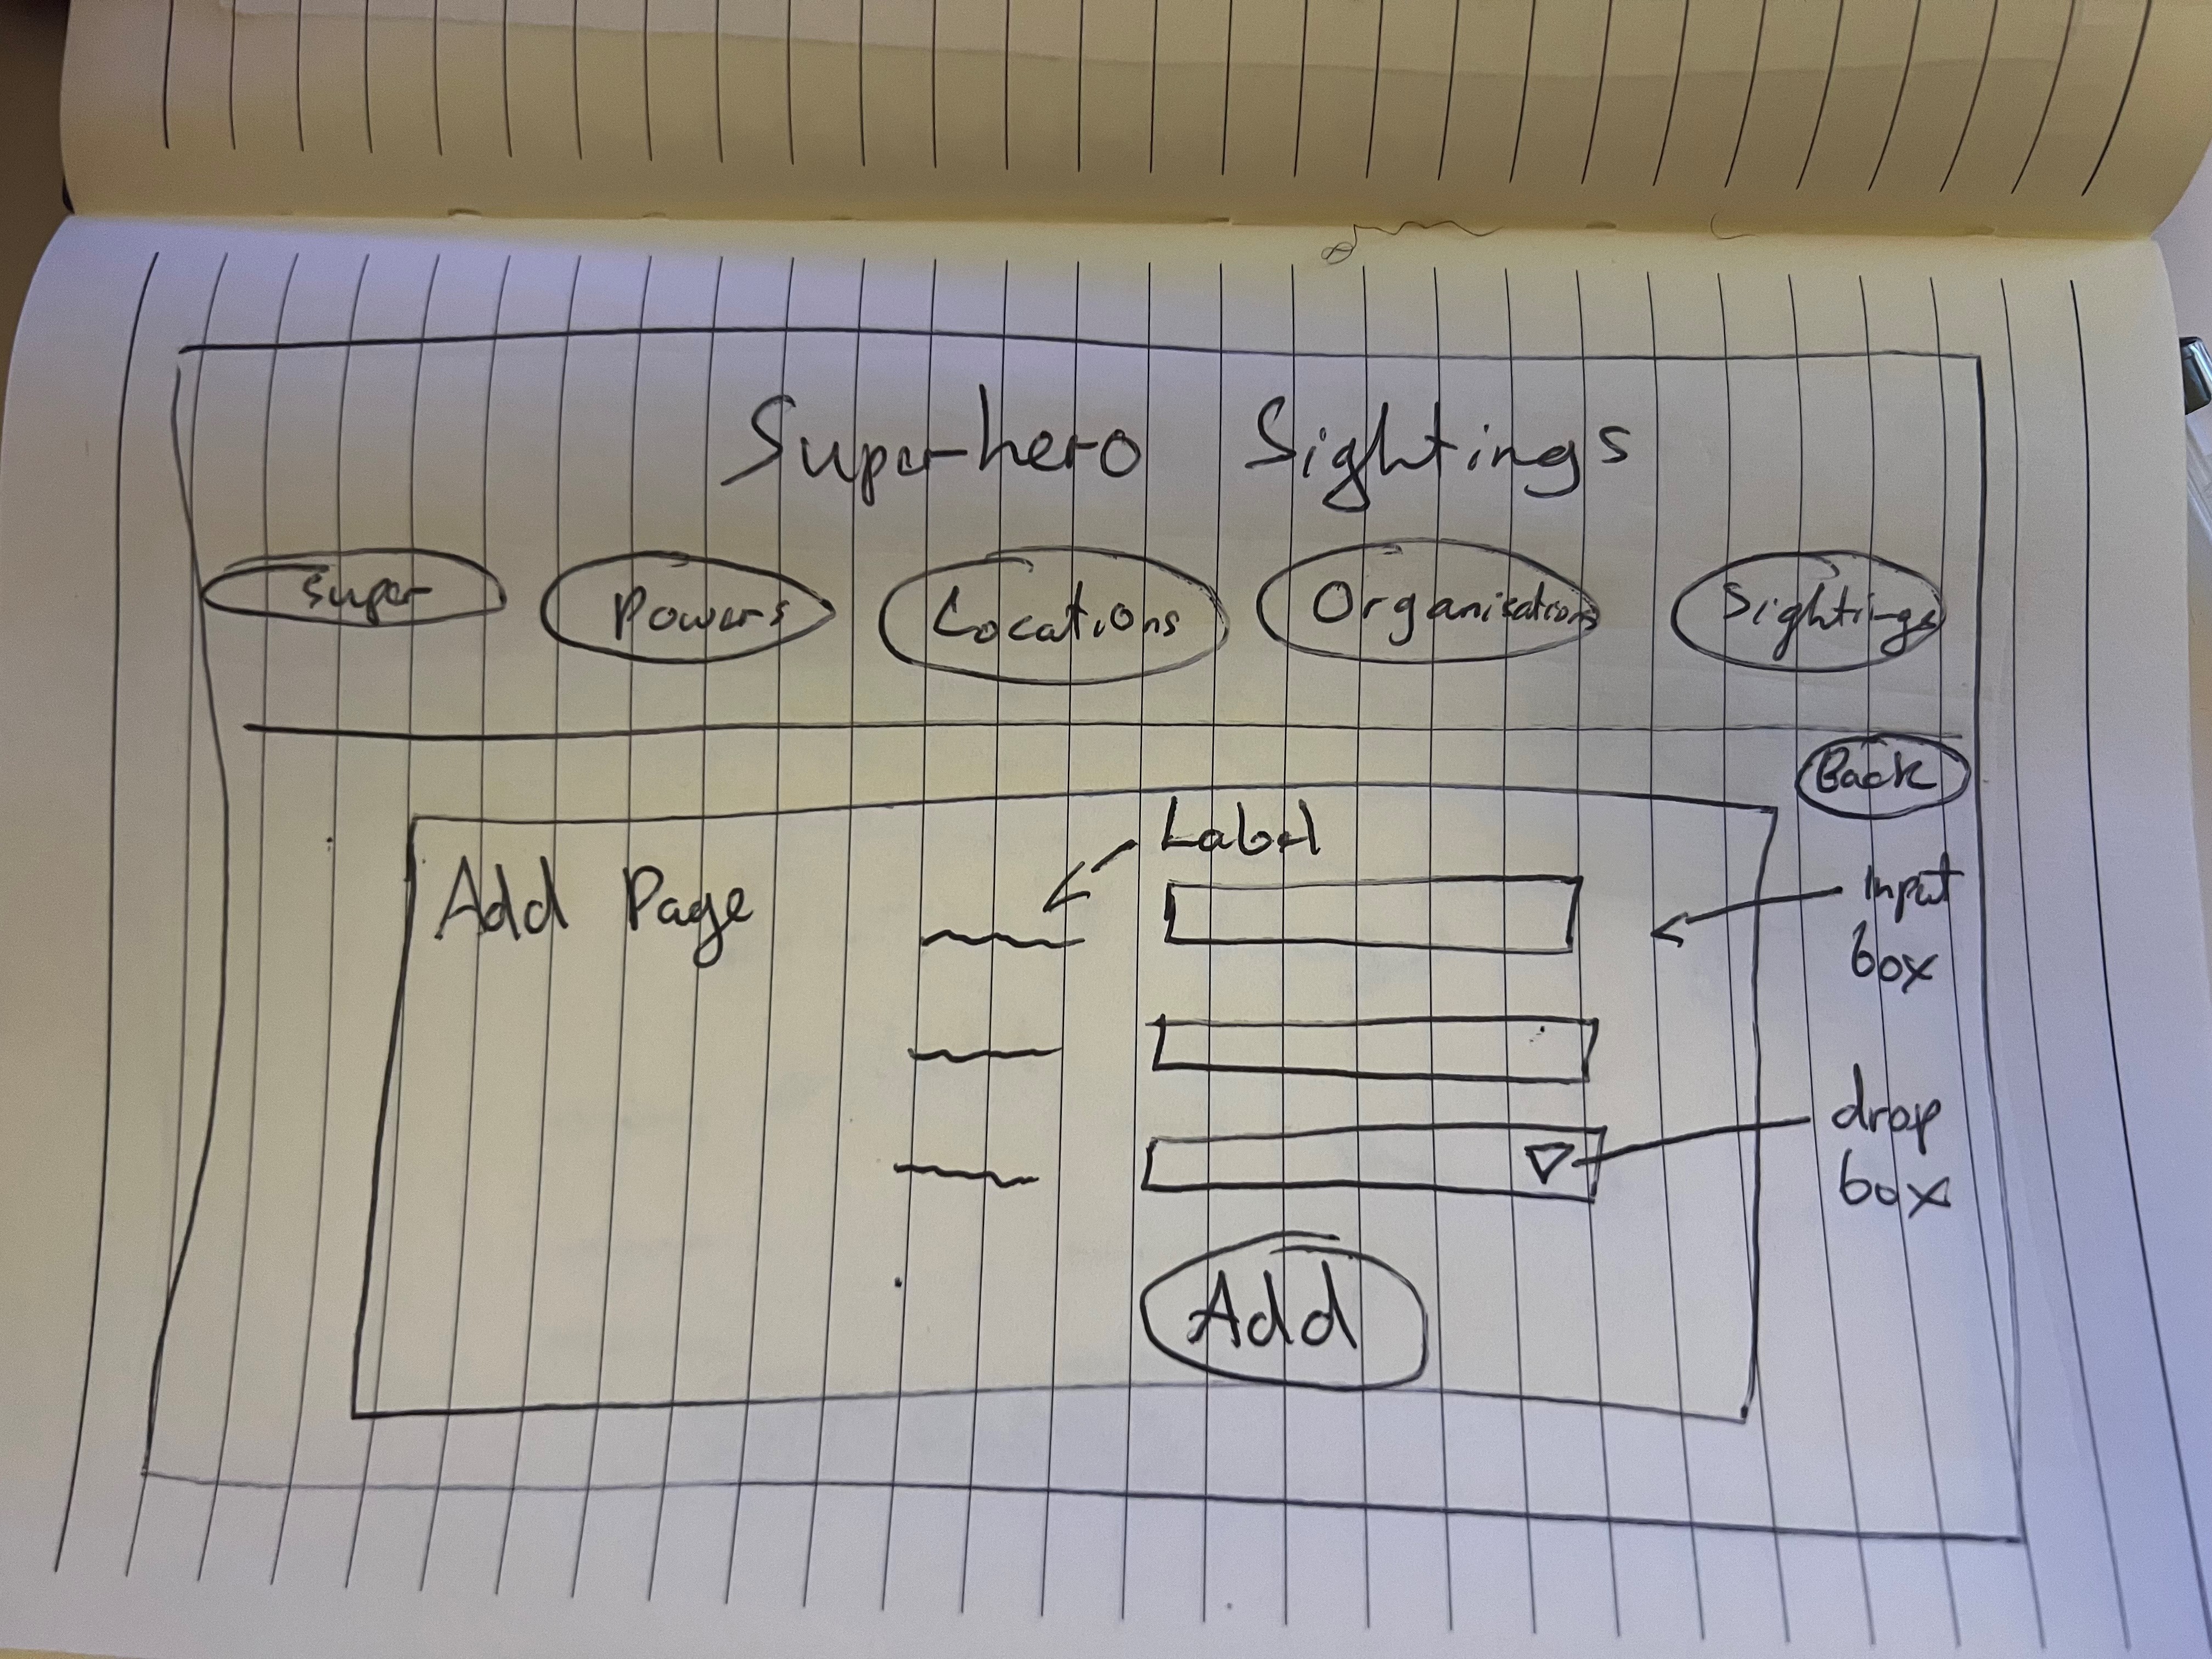 Superhero Sightings
Super Powers Locations Organisations Sightings
Back
Label
Add Page
Input
box
drop
box
Add